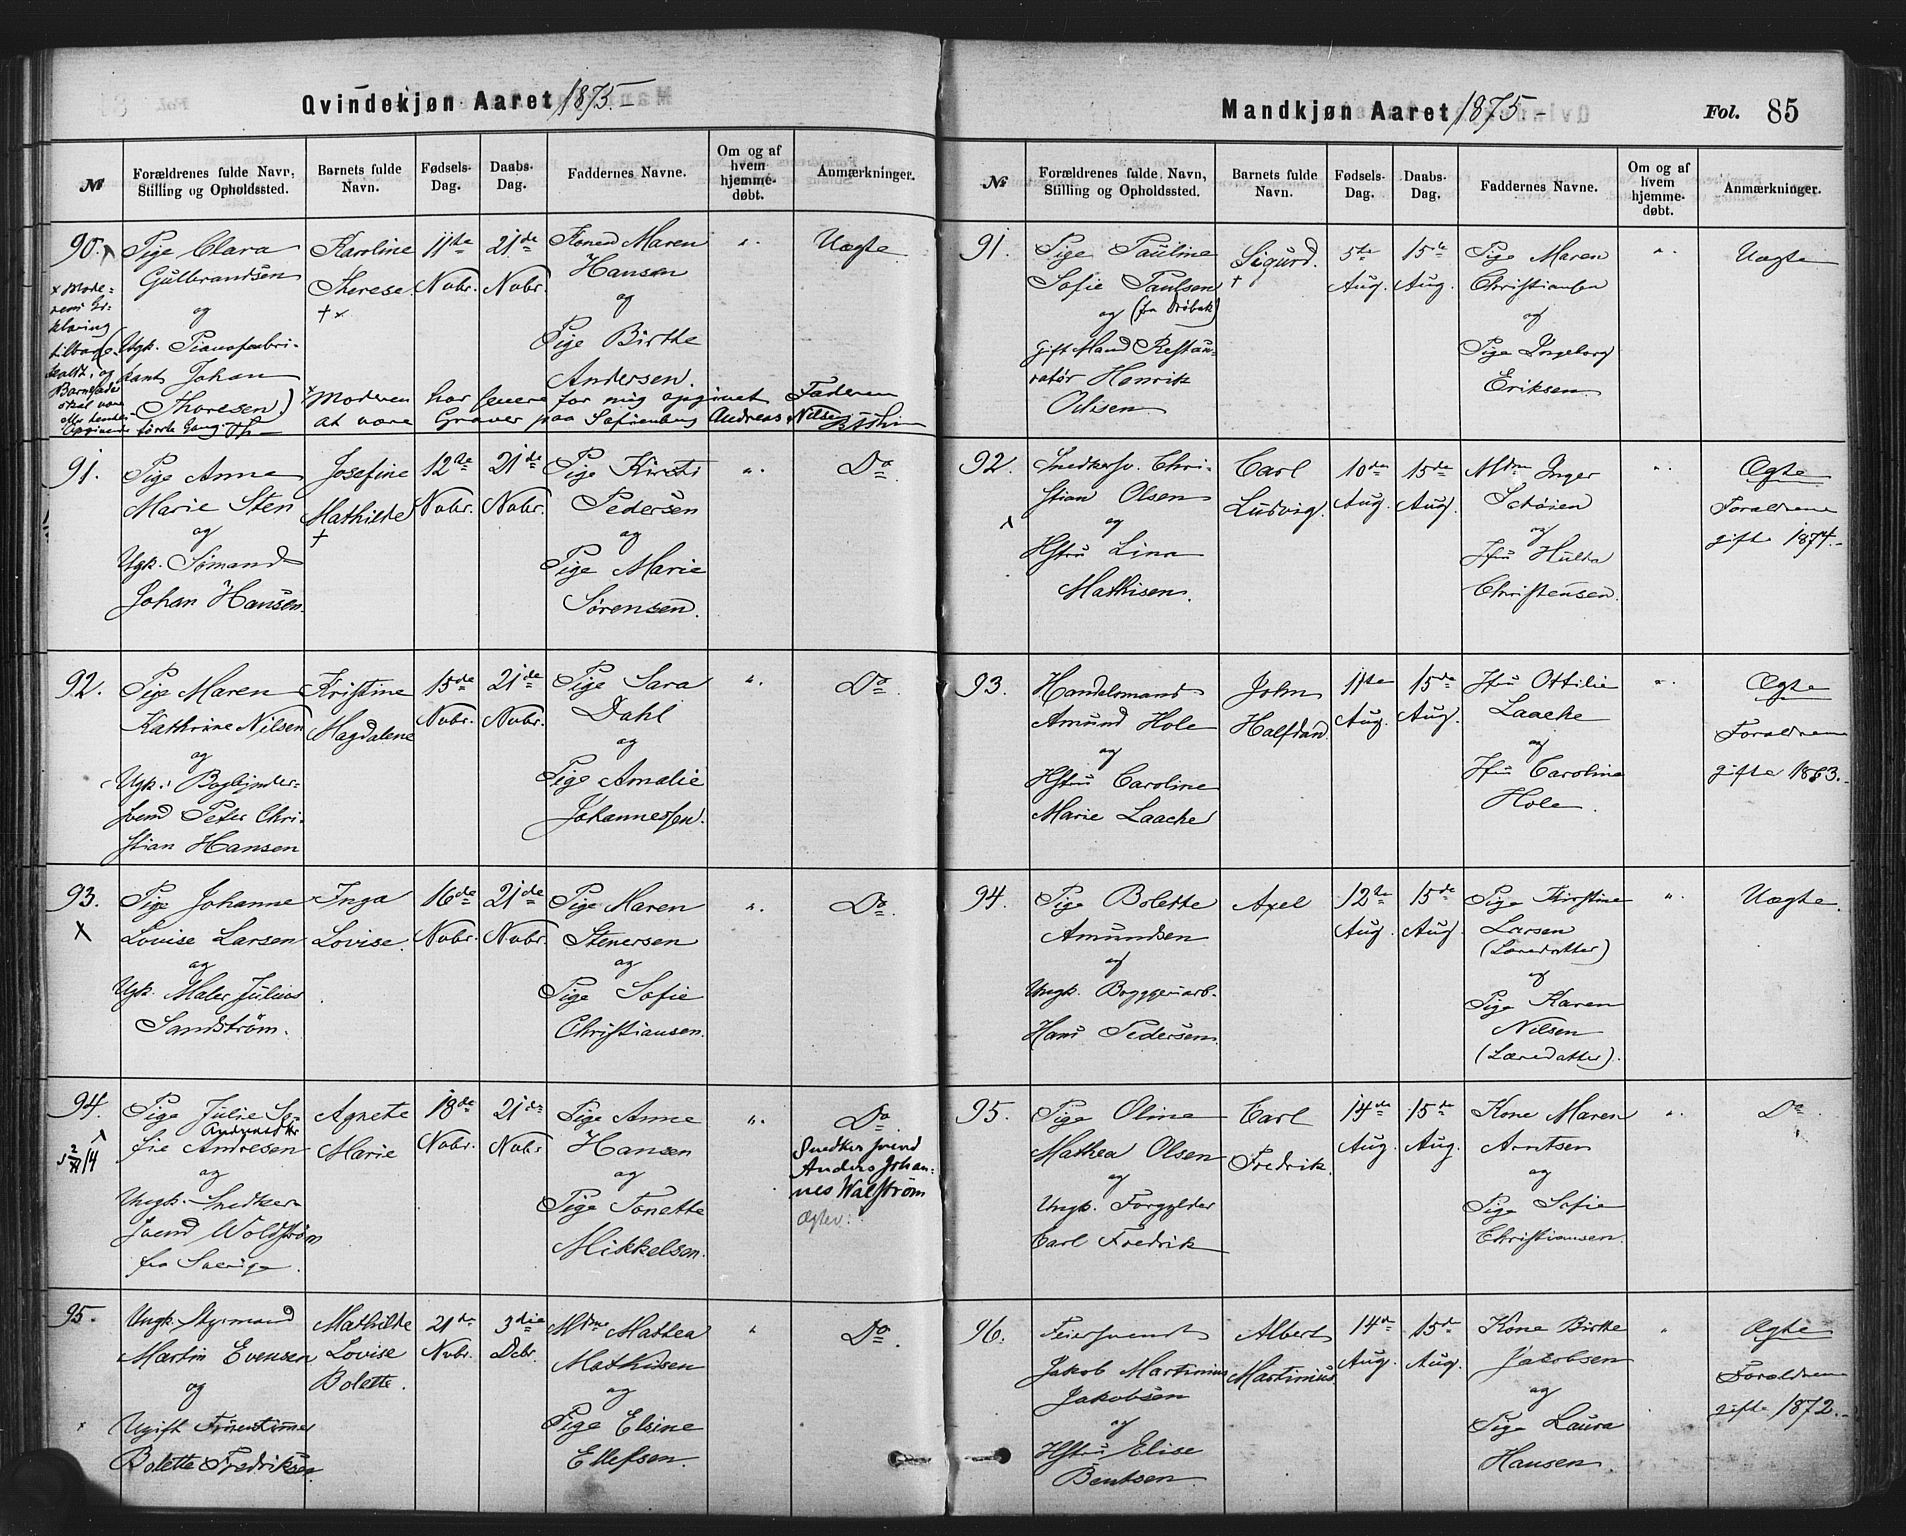 Qvindekjøn Aaret 1875.
№
Forældrenes fulde Navn,
Stilling og Opholdssted.
Barnets fulde
Navn.
Fødsels-
Dag.
Daabs-
Dag.
Faddernes Navne.
Om og af
hvem
hjemme-
døbt.
Anmærkninger.
90.
Pige Clara
Gulbrandsen
og
Ugk. Pianofabri-
kant Johan
Thoresen)
Karoline
Therese
† x
11te
Novbr.
21de
Novbr.
Maren
Hansen
og
Pige Birthe
Andersen.
"
Uægte
x Mode-
rens Er-
klæring
tilbage-
kaldt, og
første Gang
x Moderen har senere for mig opgivet Faderen
at være Graver paa Sofienberg Andreas Nilsen
91.
Pige Anne
Marie Sten
og
Ugk. Sømand
Johan Hansen.
Josefine
Mathilde
†
12te
Novbr.
21de
Novbr.
Pige Kirsti
Pedersen
og
Pige Marie
Sørensen.
"
Do
92.
Pige Maren
Kathrine Nilsen
og
Ugk. Bogbinder-
svend Peter Chri-
stian Hansen
Kristine
Magdalene
15de
Novbr.
21de
Novbr.
Pige Sara
Dahl
og
Pige Amalie
Johannessen.
"
Do
93.
X
Pige Johanne
Lovise Larsen
og
Ugk. Maler Julius
Sandstrøm.
Inga
Lovise.
16de
Novbr.
21de
Novbr.
Pige Maren
Stenersen
og
Pige Sofie
Christiansen.
"
Do
94.
Pige Julie So-
fie Andresen
og
Ungk. Snedker-
svend Woldstrøm
fra Sverige.
Agnete
Marie
18de
Novbr.
21de
Novbr.
Pige Anne
Hansen
og
Pige Tonette
Mikkelsen.
"
Do
Snedkersvend
Anders Johan-
nes Walstrøm
95.
Ungk. Styrmand
Martin Evensen
og
Ugift
Bolette Fredriksen.
Mathilde
Lovise
Bolette.
21de
Novbr.
3die
Decbr.
Mdme Mathea
Mathisen
og
Pige Elsine
Ellefsen.
"
Do
Mandkjøn Aaret 1875 -
Fol. 85
№
Forældrenes fulde Navn,
Stilling og Opholdssted.
Barnets fulde
Navn.
Fødsels-
Dag.
Daabs-
Dag.
Faddernes Navne.
Om og af
hvem
hjemme-
døbt.
Anmærkninger.
91.
Pige Pauline
Sofie Paulsen
og (fra Drøbak)
gift Mand Restau-
ratør Henrik
Olisen
Sigurd.
†
5te
Aug.
15de
Aug.
Pige Maren
Christiansen
og
Pige Ingeborg
Eriksen
"
Uægte
92.
Snedkersv. Chri-
stian Olsen
og
Hstru Lina
Mathisen.
Carl
Ludvig.
10de
Aug.
15de
Aug.
Mdm Inger
Schøien
og
Jfru Hulda
Christensen.
"
Ægte
Forældrene
gifte 1874.
93.
Handelsmand
Amund Hole
og
Hstru Caroline
Marie Laache
John
Halfdan.
11te
Aug.
15de
Aug.
Jfru Ottilie
Laache
og
Jfru Caroline
Hole.
"
Ægte
Forældrene
gifte 1863.
94.
Pige Bolette
Amundsen
og
Ungk. Bryggeriarb.
Hans Pedersen.
Axel
12te
Aug.
15de
Aug.
Pige Kirstine
Larsen
(Laredatter)
og
Pige Karen
Nilsen
(Laredatter).
"
Uægte.
95.
Pige Oline
Mathea Olsen
og
Ungk. Forgylder
Carl Fredrik
Carl
Fredrik.
14de
Aug.
15de
Aug.
Kone Maren
Arntsen
og
Pige Sofie
Christiansen.
"
Do
96.
Feiersvend
Jakob Martinius
Jakobsen
og
Hstru Elise
Bentsen
Albert
Martinius.
14de
Aug.
15de
Aug.
Kone Birthe
Jakobsen
og
Pige Laura
Hansen
"
Ægte
Forældrene
gifte 1872.